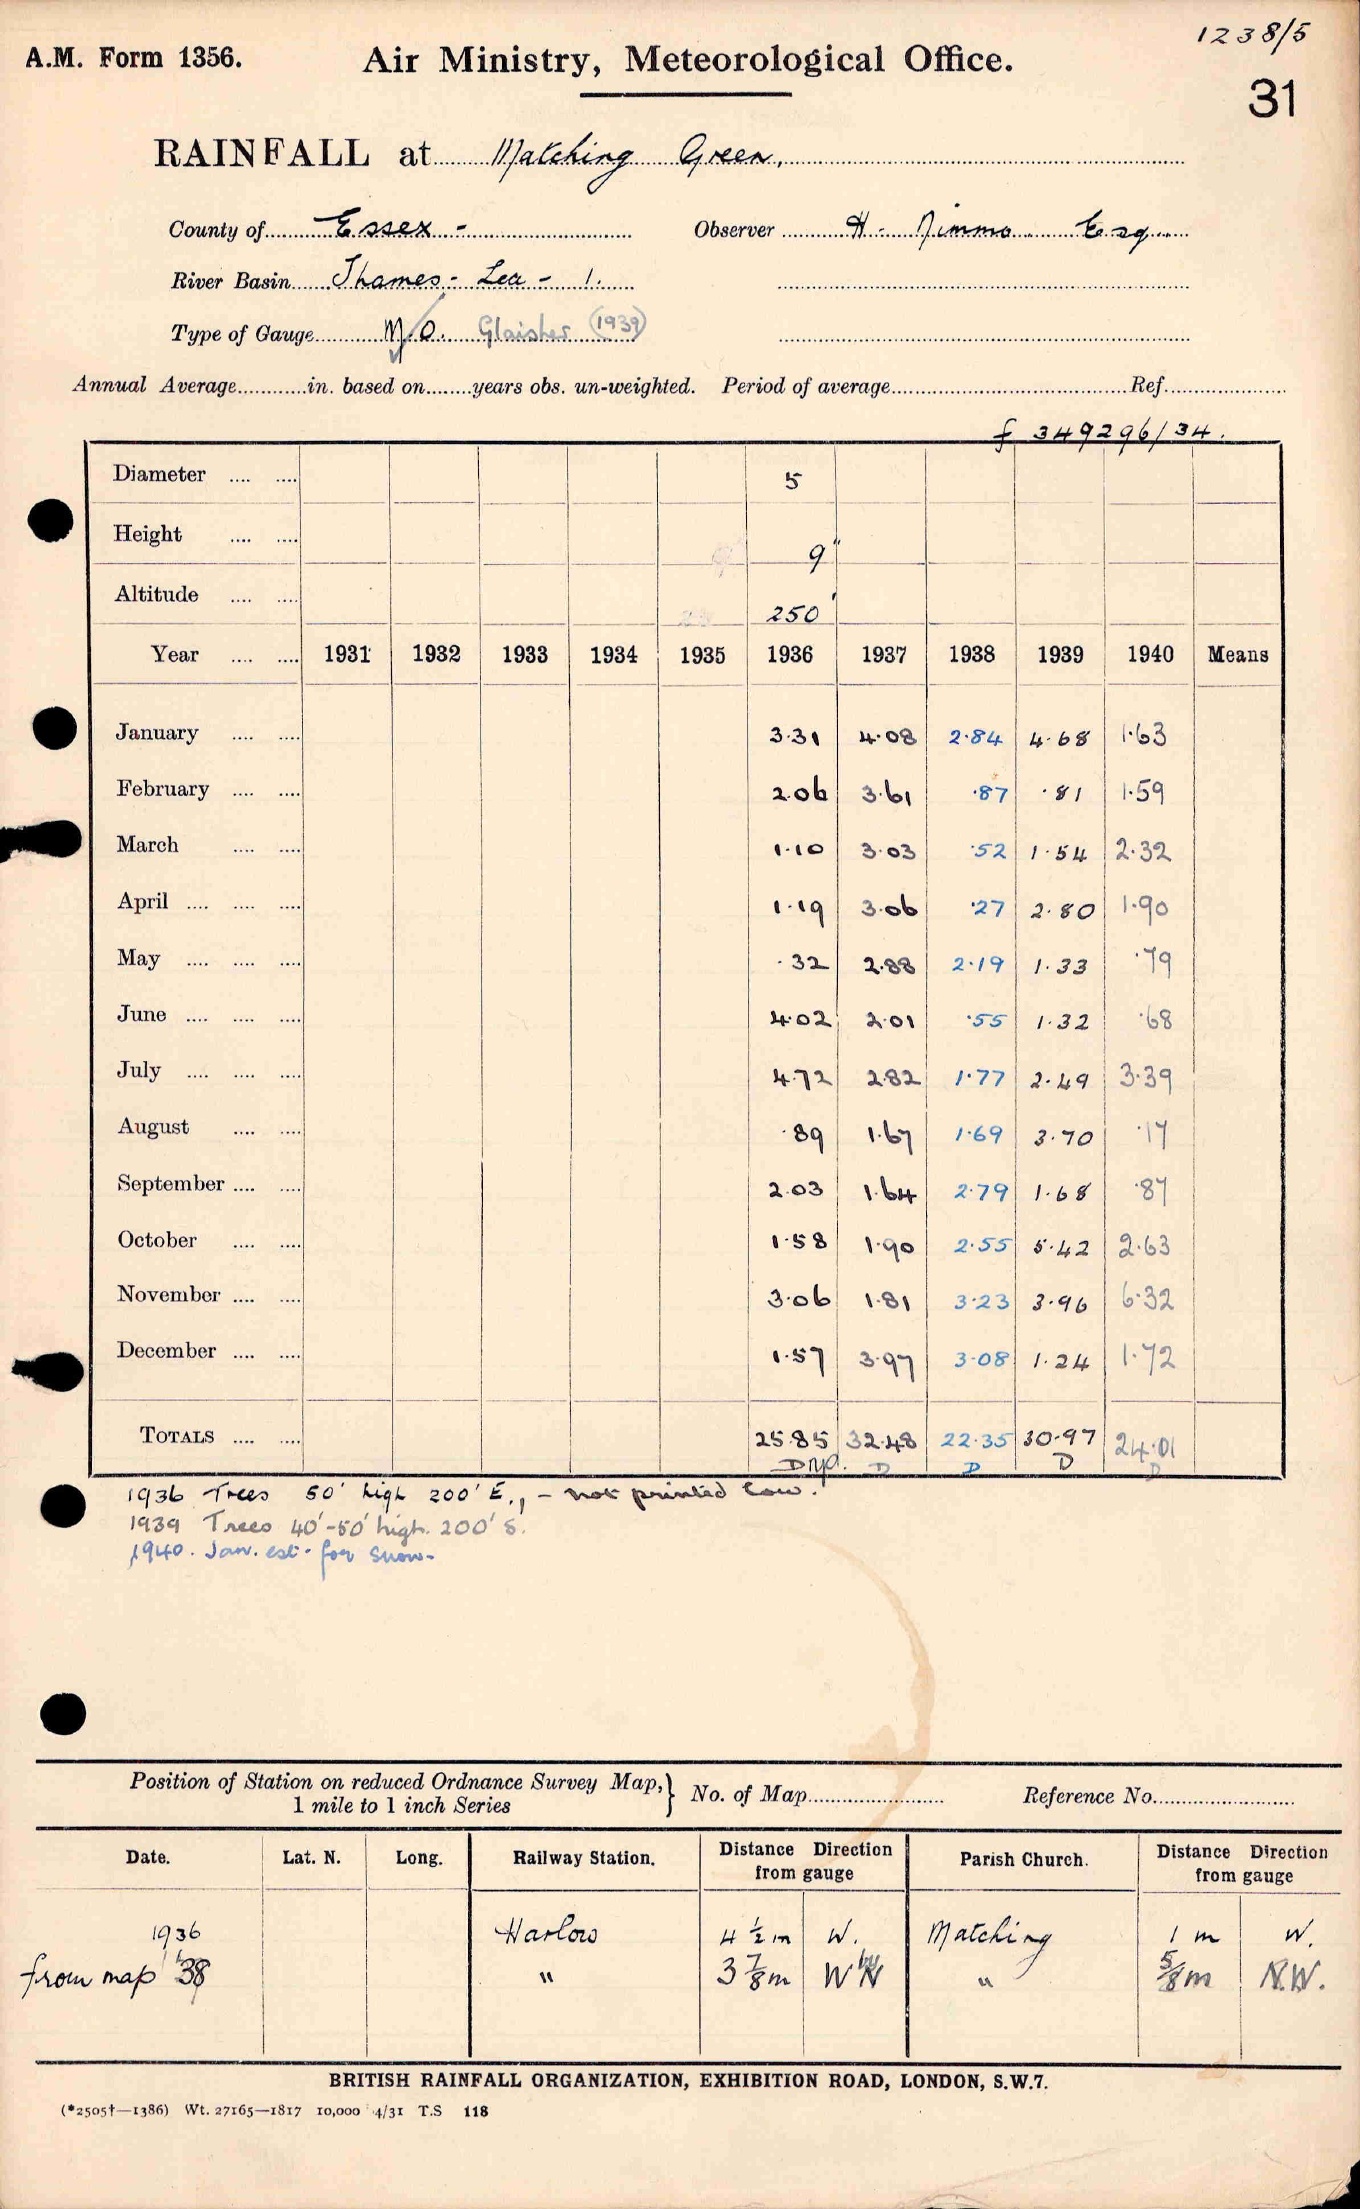 1238/5
A.M. Form 1356. Air Ministry, Meteorological Office.
31
RAINFALL at Matching Green,
County of Essex - Observer H. Nimmo Esq.
River Basin Thames - Lea - 1.
Type of Gauge M.O. Glaisher (1939)
Annual Average in. based on years obs. un-weighted. Period of average Ref.
f 349296/34.
Diameter 5
Height 9"
Altitude 250'
Year 1931 1932 1933 1934 1935 1936 1937 1938 1939 1940 Means
January 3.31 4.08 2.84 4.68 1.63
February 2.06 3.61 .87 .81 1.59
March 1.10 3.03 .52 1.54 2.32
April 1.19 3.06 .27 2.80 1.90
May .32 2.88 2.19 1.33 .79
June 4.02 2.01 .55 1.32 .68
July 4.72 2.82 1.77 2.49 3.39
August .89 1.67 1.69 3.70 .17
September 2.03 1.64 2.79 1.68 .87
October 1.58 1.90 2.55 5.42 2.63
November 3.06 1.81 3.23 3.96 6.32
December 1.57 3.97 3.08 1.24 1.72
TOTALS 25.85 32.48 22.35 30.97 24.01
D D D D
1936 Trees 50' high 200' E., - not printed low.
1939 Trees 40'-50' high. 200' S.
1940. Jan. est. for snow.
Position of Station on reduced Ordnance Survey Map,} No. of Map Reference No.
1 mile to 1 inch Series
Date. Lat. N. Long. Railway Station. Distance Direction from gauge Parish Church. Distance Direction from gauge
1936 Harlow 4 1/2 m W. Matching 1 m W.
from map '38 " 3 7/8 m W by N " 5/8 m N.W.
BRITISH RAINFALL ORGANIZATION, EXHIBITION ROAD, LONDON, S.W.7.
(*2505†—1386) Wt. 27165—1817 10,000 4/31 T.S 118